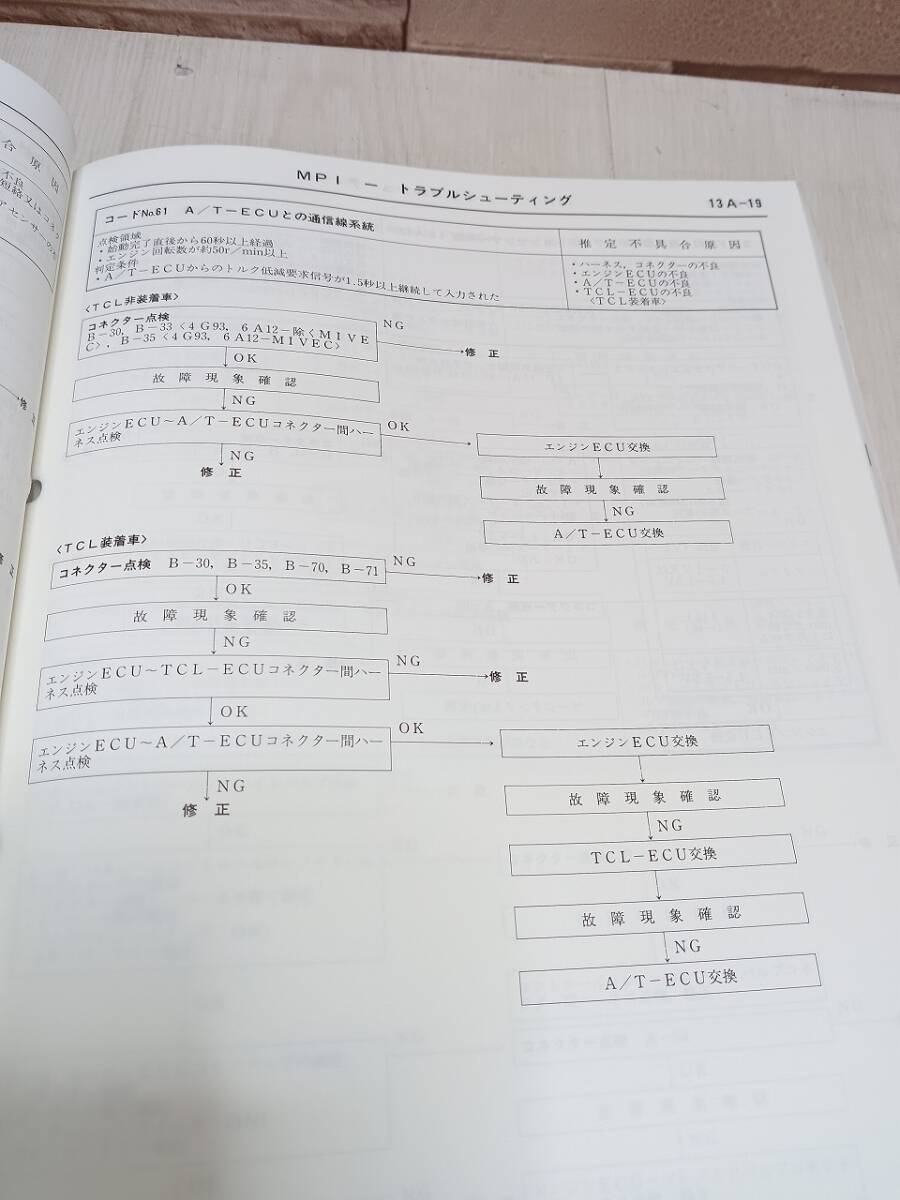 合 原 因
不良
短絡又はコネク
アセンサーの
修 正
修 正
MPI － トラブルシューティング
13A－19
コードNo.61 A／T－ECUとの通信線系統
推 定 不 具 合 原 因
点検領域
・始動完了直後から60秒以上経過
・エンジン回転数が約50r／min以上
判定条件
・A／T－ECUからのトルク低減要求信号が1.5秒以上継続して入力された
・ハーネス，コネクターの不良
・エンジンECUの不良
・A／T－ECUの不良
・TCL－ECUの不良
〈TCL装着車〉
〈TCL非装着車〉
コネクター点検
B－30，B－33〈4G93，6A12－除くMIVE
C〉，B－35〈4G93，6A12－MIVEC〉
NG
修 正
OK
故 障 現 象 確 認
NG
エンジンECU～A／T－ECUコネクター間ハー
ネス点検
OK
エンジンECU交換
NG
修 正
故 障 現 象 確 認
NG
A／T－ECU交換
〈TCL装着車〉
コネクター点検 B－30，B－35，B－70，B－71
NG
修 正
OK
故 障 現 象 確 認
NG
エンジンECU～TCL－ECUコネクター間ハー
ネス点検
NG
修 正
OK
エンジンECU～A／T－ECUコネクター間ハー
ネス点検
OK
エンジンECU交換
NG
修 正
故 障 現 象 確 認
NG
TCL－ECU交換
故 障 現 象 確 認
NG
A／T－ECU交換